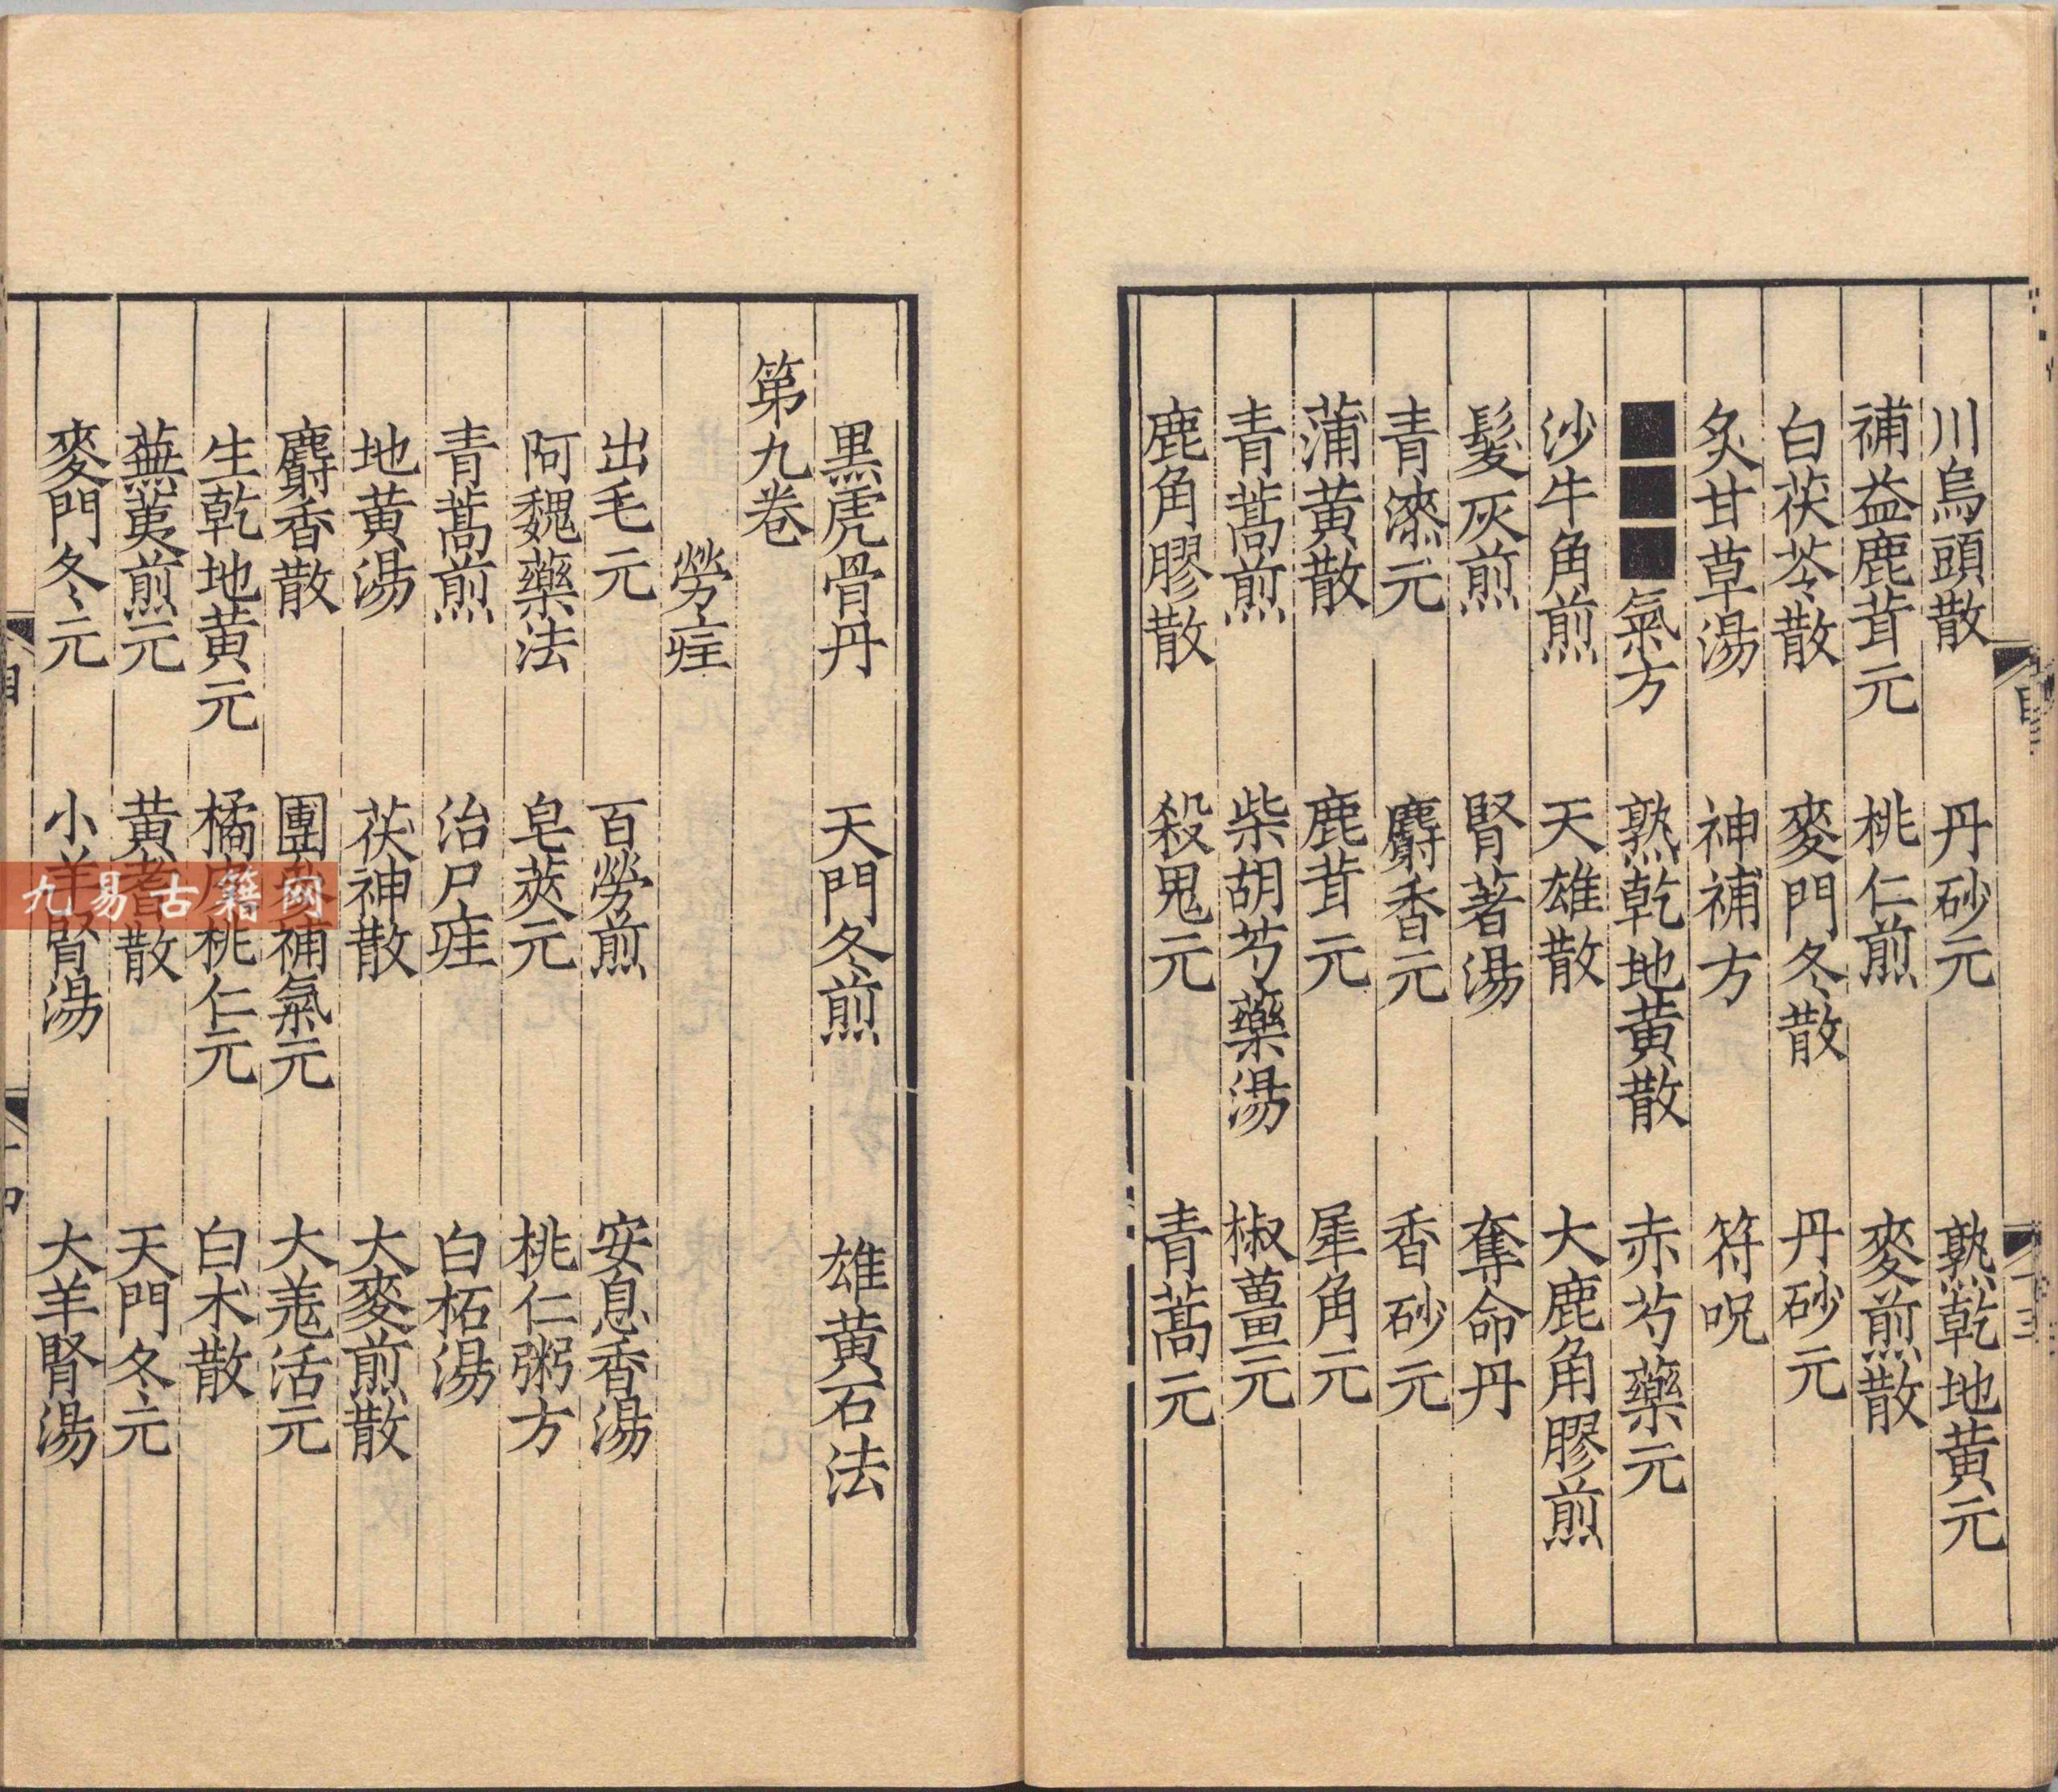 川烏頭散　丹砂元　熟乾地黃元
補益鹿茸元　桃仁煎　麥煎散
白茯苓散　麥門冬散　丹砂元
炙甘草湯　神補方　符呪
■■■氣方　熟乾地黃散　赤芍藥元
沙牛角煎　天雄散　大鹿角膠煎
髮灰煎　腎著湯　奪命丹
青漆元　麝香元　香砂元
蒲黃散　鹿茸元　犀角元
青蒿煎　柴胡芍藥湯　椒薑元
鹿角膠散　殺鬼元　青蒿元
黑虎骨丹　天門冬煎　雄黃石法
第九卷
勞疰
出毛元　百勞煎　安息香湯
阿魏藥法　皂莢元　桃仁粥方
青蒿煎　治尸疰　白柘湯
地黃湯　茯神散　大麥煎散
麝香散　團參補氣元　大羗活元
生乾地黃元　橘皮桃仁元　白术散
蕪荑煎元　黃耆散　天門冬元
麥門冬元　小羊腎湯　大羊腎湯
九易古籍网